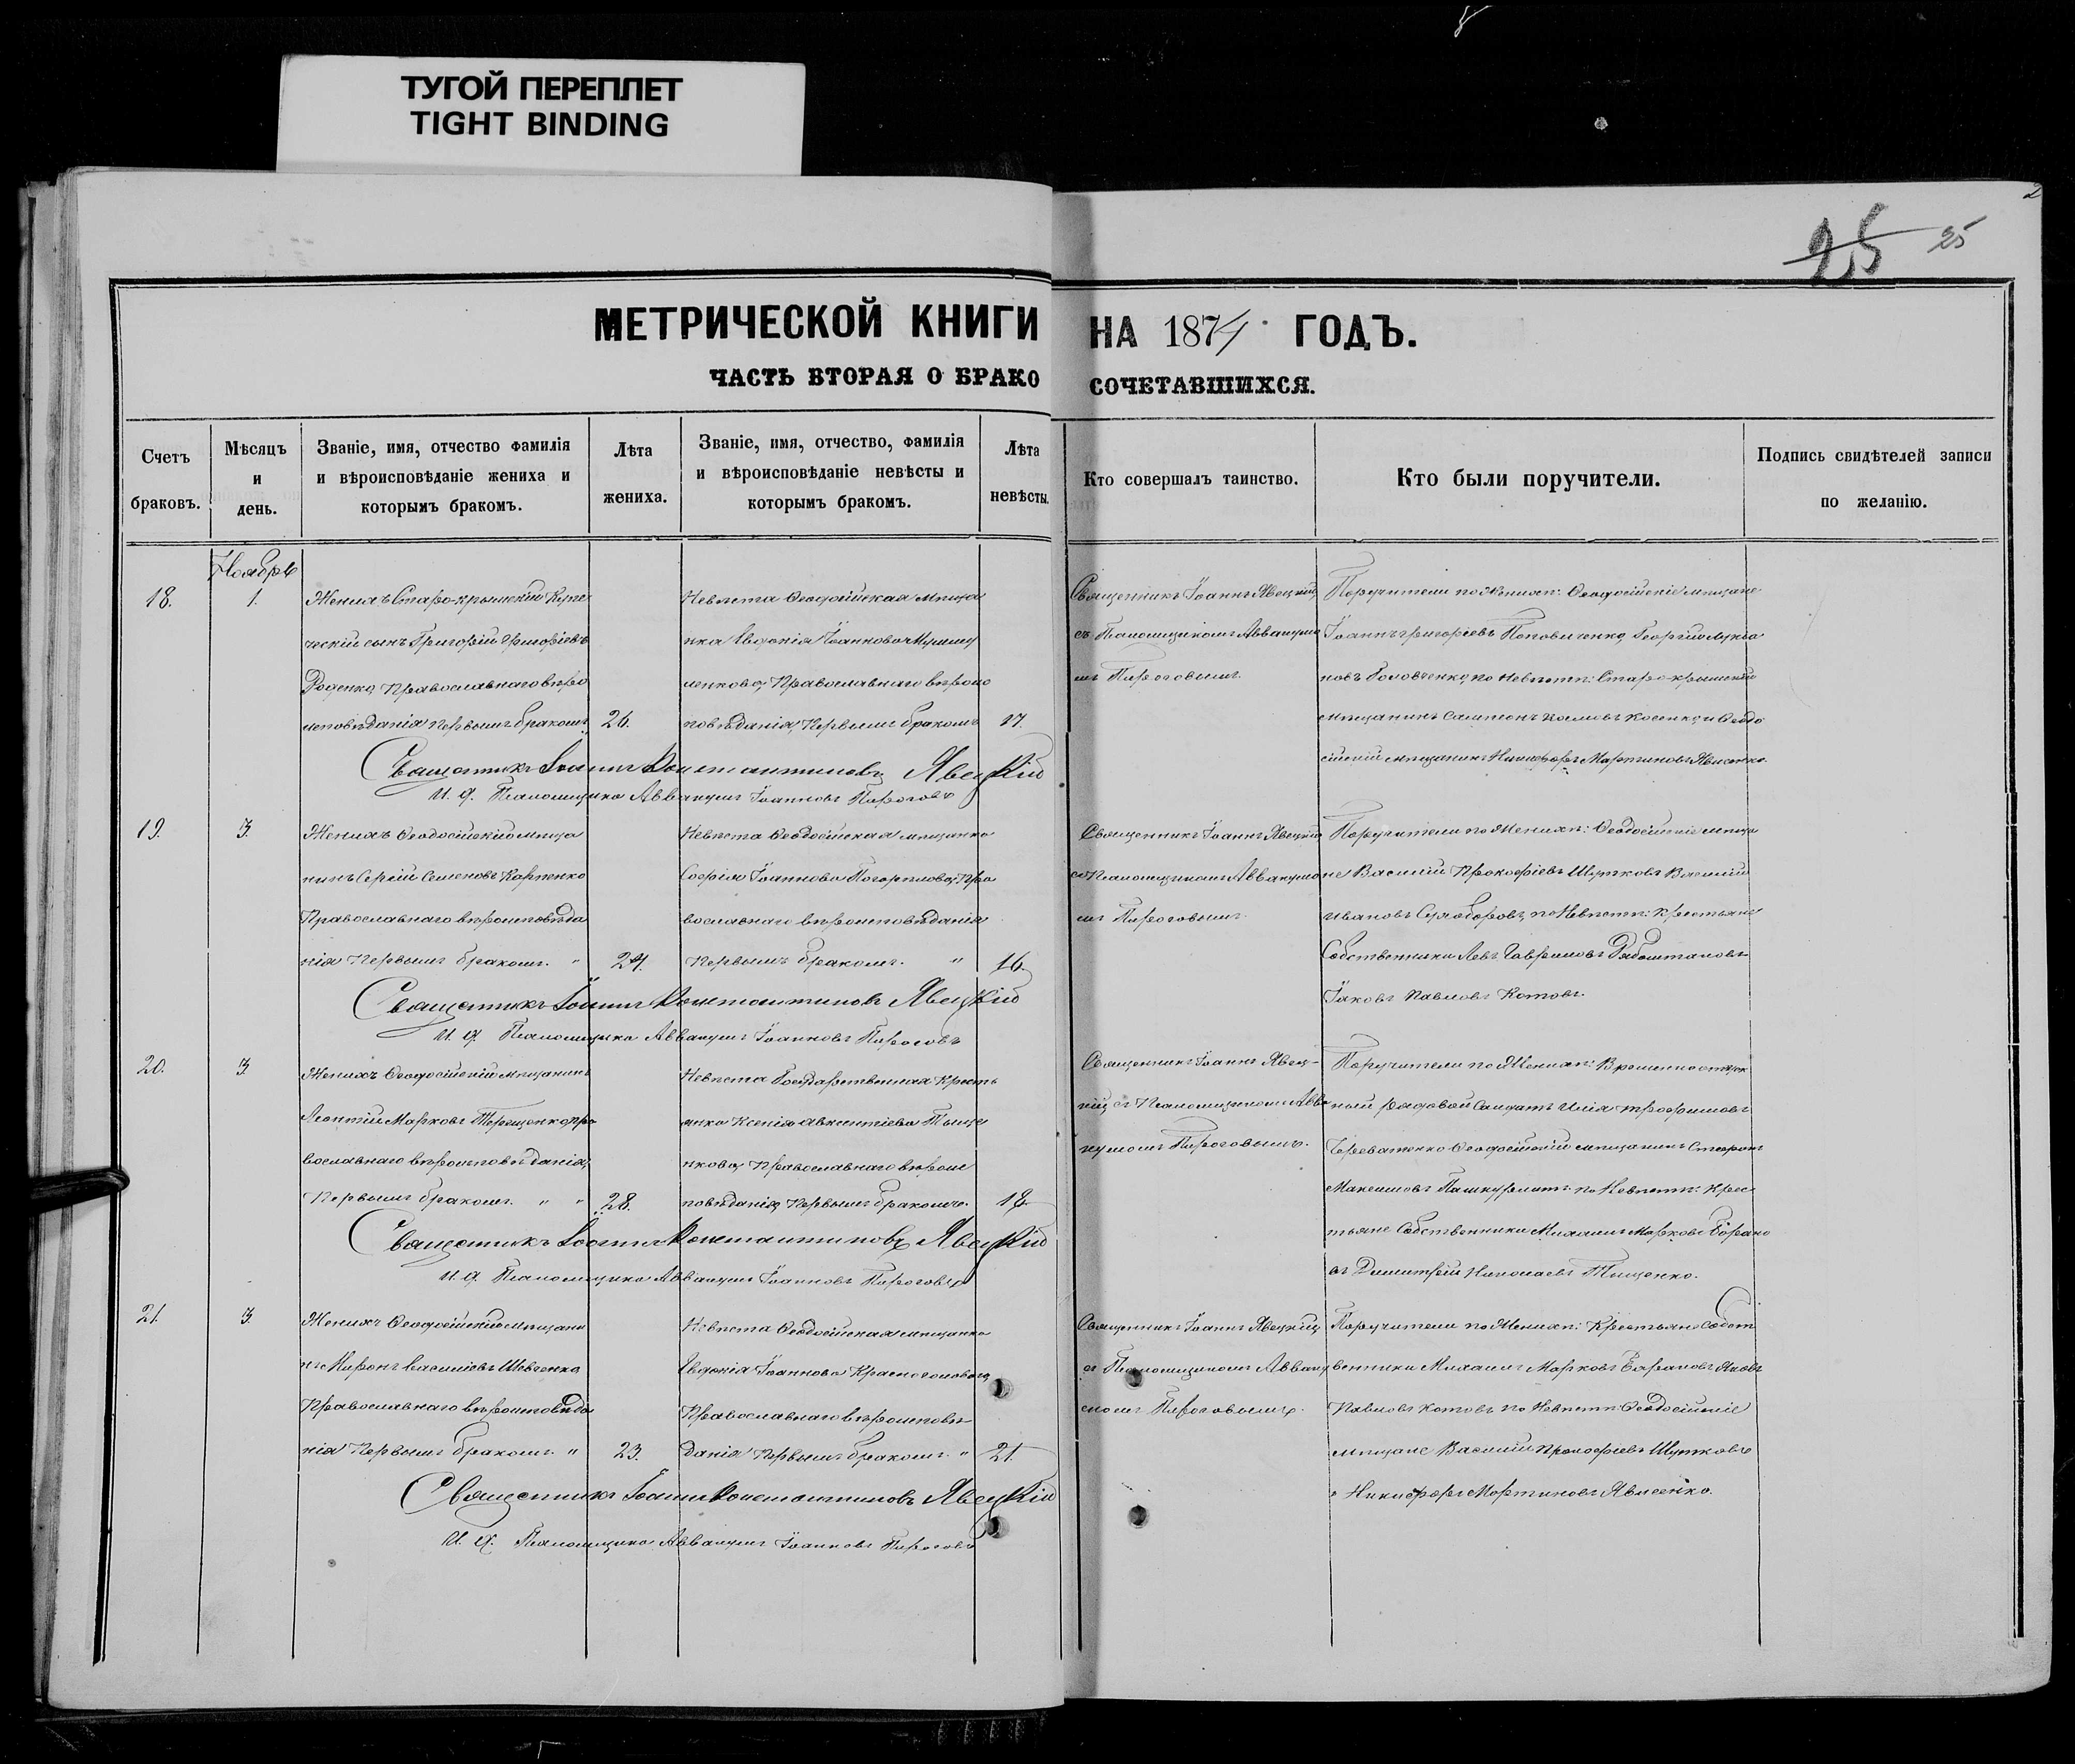 ТУГОЙ ПЕРЕПЛЕТ
TIGHT BINDING
25 25
МЕТРИЧЕСКОЙ КНИГИ НА 1874 ГОДЪ.
ЧАСТЬ ВТОРАЯ О БРАКОСОЧЕТАВШИХСЯ.
Счетъ браковъ.
Мѣсяцъ и день.
Званіе, имя, отчество фамилія
и вѣроисповѣданіе жениха и
которымъ бракомъ.
Лѣта жениха.
Званіе, имя, отчество, фамилія
и вѣроисповѣданіе невѣсты и
которымъ бракомъ.
Лѣта невѣсты.
Кто совершалъ таинство.
Кто были поручители.
Подпись свидѣтелей записи
по желанію.
Ноябрь
18.
1.
Женихъ Старо-крымскій Купе
ческій сынъ Григорій Григорьевъ
Роденко, Православнаго вѣро
исповѣданія Первымъ бракомъ,
26.
Невѣста Ѳеодосійская мѣща
нка Евдокія Іоаннова
Православнаго вѣроис
повѣданія, Первымъ бракомъ
17
Священникъ Іоаннъ Явецкій,
съ Псаломщикомъ Аввакумо
мъ Пироговымъ
Поручители по Женихѣ: Ѳеодосійскіе мѣщане
Іоаннъ Григорьевъ Поповиченко, Георгій Лукья
новъ Головченко, по Невѣстѣ: Старо-крымскій
мѣщанинъ Косенко, и Ѳеодо
сійскій мѣщанинъ Никифоръ Мартиновъ Явисенко.
Священникъ Іоаннъ Константиновъ Явецкій
И. д. Псаломщика Аввакумъ Іоанновъ Пироговъ
19.
3.
Женихъ Ѳеодосійскій мѣща
нинъ Сергій Семеновъ Карпенко
Православнаго вѣроисповѣда
нія Первымъ бракомъ. "
24.
Невѣста Ѳеодосійская мѣщанка
Софія Іоаннова Погорѣлова, Пра
вославнаго вѣроисповѣданія
Первымъ бракомъ. "
16.
Священникъ Іоаннъ Явецкій
со Псаломщикомъ Аввакумо
мъ Пироговымъ
Поручители по Женихѣ: Ѳеодосійскіе мѣща
не Василій Прокофіевъ Шутковъ Василій
Ивановъ по Невѣстѣ: Крестьяне
Собственники Левъ Гавриловъ
Іаковъ Павловъ Котовъ.
Священникъ Іоаннъ Константиновъ Явецкій
И. д. Псаломщика Аввакумъ Іоанновъ Пироговъ
20.
3.
Женихъ Ѳеодосійскій мѣщанинъ
Леонтій Марковъ Терещенко, Пра
вославнаго вѣроисповѣданія,
Первымъ бракомъ. " "
28.
Невѣста Государственная Кресть
янка Ксенія Авксентіева Тыще
нкова, Православнаго вѣроис
повѣданія, Первымъ бракомъ.
18.
Священникъ Іоаннъ Явец-
кій, съ Псаломщикомъ Авва
кумомъ Пироговымъ.
Поручители по Женихѣ: Временноотпуск
ный рядовой Солдатъ Илія Трофимовъ
Череватенко Ѳеодосійскій мѣщанинъ
Максимовъ по Невѣстѣ: Крес
тьяне Собственники Михаилъ Марковъ Барано
въ Димитрій Николаевъ Тищенко.
Священникъ Іоаннъ Константиновъ Явецкій
И. д. Псаломщика Аввакумъ Іоанновъ Пироговъ
21.
3.
Женихъ Ѳеодосійскій мѣщани
нъ Миронъ Василіевъ Шевченко
Православнаго вѣроисповѣда
нія Первымъ бракомъ. "
23.
Невѣста Ѳеодосійская мѣщанка
Евдокія Іоаннова Красноголовова,
Православнаго вѣроисповѣ
данія Первымъ бракомъ. "
21.
Священникъ Іоаннъ Явецкій,
съ Псаломщикомъ Авваку
момъ Пироговымъ.
Поручители по Женихѣ: Крестьяне Собст
венники Михаилъ Марковъ Барановъ Яковъ
Павловъ Котовъ по Невѣстѣ Ѳеодосійскіе
мѣщане Василій Прокофіевъ Шутковъ
Никифоръ Мартиновъ Явисенко.
Священникъ Іоаннъ Константиновъ Явецкій
И. д. Псаломщика Аввакумъ Іоанновъ Пироговъ